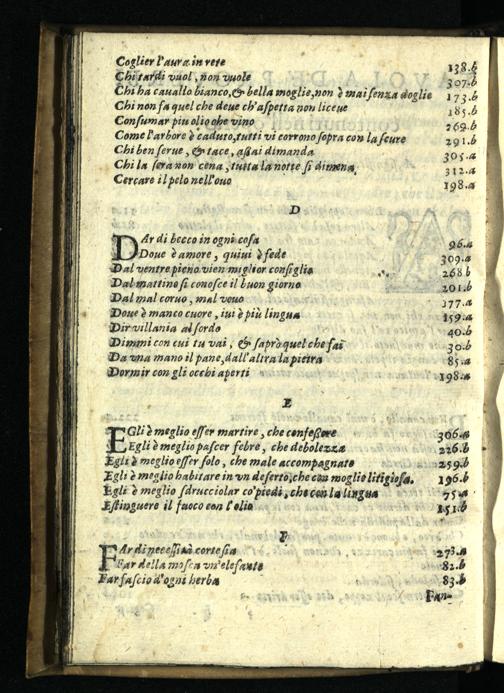 Coglier l'aura in rete 138.b
Chi tardi vuol, non vuole 307.b
Chi ha cauallo bianco, & bella moglie, non è mai senza doglie 173.b
Chi non fa quel che deue ch'aspetta non liceue 185.b
Consumar piu olio che vino 269.b
Come l'arbore è caduto, tutti vi corrono sopra con la scure 291.b
Chi ben serue, & tace, assai dimanda 305.a
Chi la sera non cena, tutta la notte si dimena 312.a
Cercare il pelo nell'ouo 198.a
D
DAr di becco in ogni cosa 96.a
Doue è amore, quiui è fede 309.a
Dal ventre pieno vien miglior consiglio 268 b
Dal mattino si conosce il buon giorno 201.b
Dal mal coruo, mal vouo 177.a
Doue è manco cuore, iui è più lingua 159.a
Dir villania al sordo 40.b
Dimmi con cui tu vai, & saprò quel che fai 30.b
Da vna mano il pane, dall'altra la pietra 85.a
Dormir con gli occhi aperti 198.a
E
EGli è meglio esser martire, che confessore 306.a
Egli è meglio pascer febre, che debolezza 226.b
Egli è meglio esser solo, che male accompagnato 259.b
Egli è meglio habitare in vn deserto, che con moglie litigiosa. 196.b
Egli è meglio sdrucciolar co'piedi, che con la lingua 75.a
Estinguere il fuoco con l'olio 151.b
F
FAr di necessità cortesia 273.a
Far della mosca vn'elefante 82.b
Far fascio d'ogni herba 83.b
Fan-